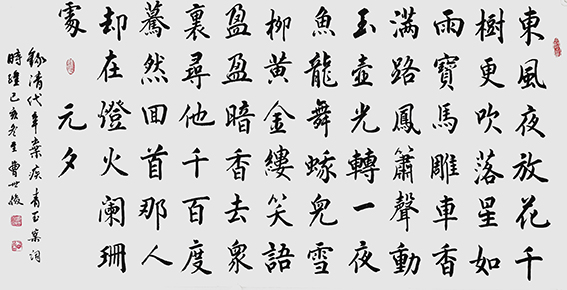 東風夜放花千
樹更吹落星如
雨寶馬雕車香
滿路鳳簫聲動
玉壺光轉一夜
魚龍舞蛾兒雪
柳黃金縷笑語
盈盈暗香去衆
裏尋他千百度
驀然回首那人
却在燈火阑珊
處 元夕
錄清代辛棄疾青玉案詞
時維己亥冬 曹世